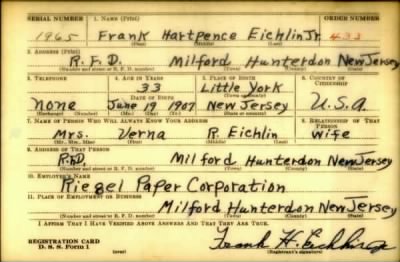 SERIAL NUMBER 1. NAME (Print) ORDER NUMBER
1965 Frank Hartpence Eichlin Jr. 433
(First) (Middle) (Last)
2. ADDRESS (Print)
R.F.D. Milford Hunterdon New Jersey
(Number and street or R. F. D. number) (Town) (County) (State)
3. TELEPHONE 4. AGE IN YEARS 5. PLACE OF BIRTH 6. COUNTRY OF CITIZENSHIP
33 Little York
DATE OF BIRTH (Town or county)
none June 19 1907 New Jersey U.S.A.
(Exchange) (Number) (Mo.) (Day) (Yr.) (State or country)
7. NAME OF PERSON WHO WILL ALWAYS KNOW YOUR ADDRESS 8. RELATIONSHIP OF THAT PERSON
Mrs. Verna R. Eichlin wife
(Mr., Mrs., Miss) (First) (Middle) (Last)
9. ADDRESS OF THAT PERSON
Milford Hunterdon New Jersey
(Number and street or R. F. D. number) (Town) (County) (State)
10. EMPLOYER'S NAME
Riegel Paper Corporation
11. PLACE OF EMPLOYMENT OR BUSINESS
Milford Hunterdon New Jersey
(Number and street or R. F. D. number) (Town) (County) (State)
I AFFIRM THAT I HAVE VERIFIED ABOVE ANSWERS AND THAT THEY ARE TRUE.
REGISTRATION CARD
D. S. S. Form 1 (over) Frank H. Eichlin Jr.
(Registrant's signature)